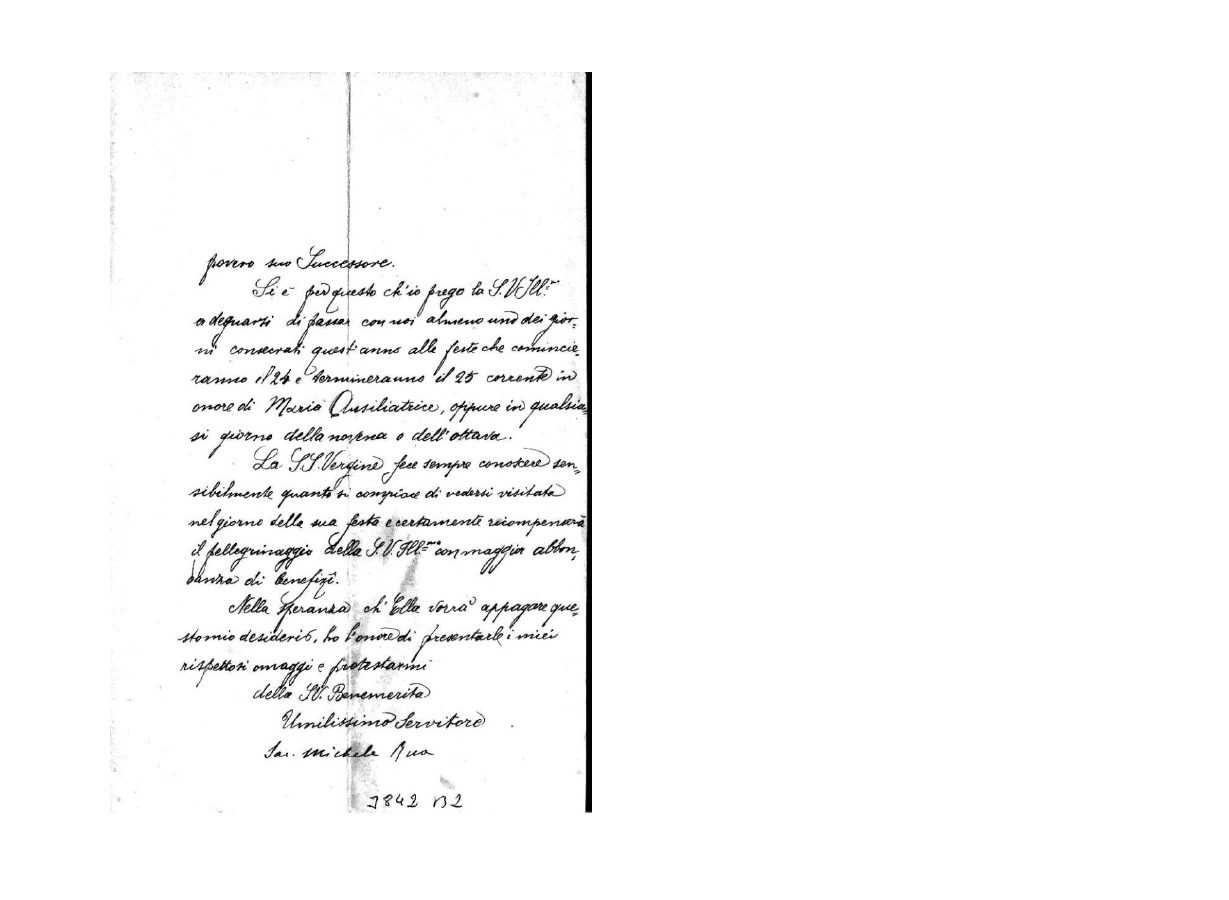 povero suo Successore.
Si è per questo ch'io prego la S. V. Ill.ma
a degnarsi di passar con noi almeno uno dei gior-
ni consecrati quest'anno alle feste che comincie-
ranno il 24 e termineranno il 25 corrente in
onore di Maria Ausiliatrice, oppure in qualsia-
si giorno della novena o dell'ottava.
La SS. Vergine fece sempre conoscere sen-
sibilmente quanto si compiace di vedersi visitata
nel giorno della sua festa e certamente ricompenserà
il pellegrinaggio della S. V. Ill.ma con maggior abbon-
danza di benefizî.
Nella speranza ch'Ella vorrà appagare que-
sto mio desiderio, ho l'onore di presentarle i miei
rispettosi omaggi e protestarmi
della S. V. Benemerita
Umilissimo Servitore
Sac. Michele Rua
3842 B2